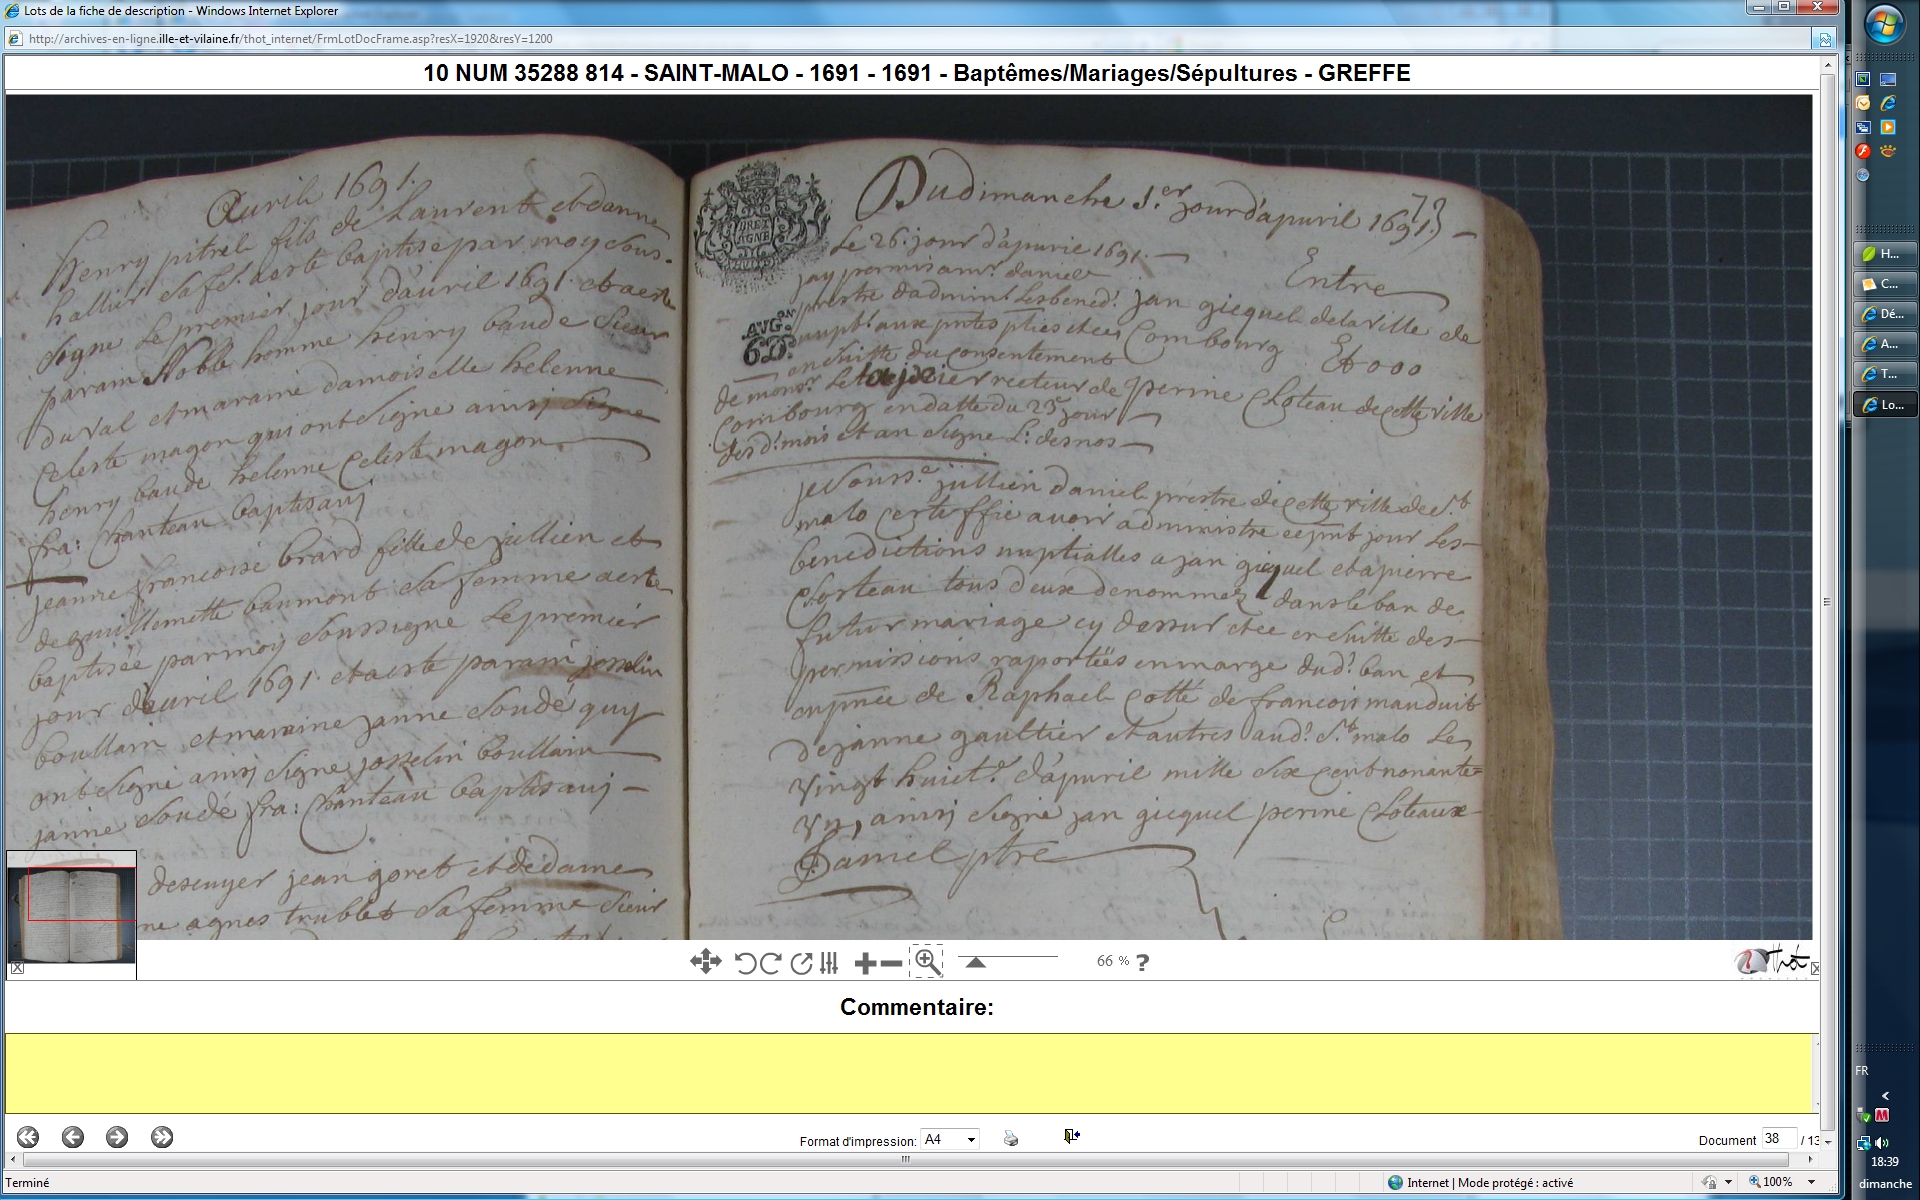 Lots de la fiche de description - Windows Internet Explorer
http://archives-en-ligne.ille-et-vilaine.fr/thot_internet/FrmLotDocFrame.asp?resX=1920&resY=1200
10 NUM 35288 814 - SAINT-MALO - 1691 - 1691 - Baptêmes/Mariages/Sépultures - GREFFE
Auril 1691.
henry pitrel fils de Laurent et de anne
hallier sa fe. a esté baptisé par moy sous-
signe le premier jour d'auril 1691 et a esté
parain Noble homme henry baude sieur
du Val et maraine damoiselle helenne
Celeste magon qui ont signe ainsi signe
henry baude helenne Celeste magon
fra: Chanteau baptisaui
jeanne francoise brard fille de jullien et
de guillemette baumont sa femme a esté
baptisée par moy soussigne le premier
jour d'auril 1691 et a esté parain josselin
boullain et maraine janne soudé quy
ont signé ainsi signe josselin boullain
janne soudé fra: Chanteau baptisaui
descuyer jean goret et de dame
ne agnes trublet sa femme sieur
BRET
AGNE
AVG.on
6D.
73
Du dimanche 1.er jour d'apuril 1691
Le 26. jour d'apuril 1691.
jay permis a mr daniel
prestre d'admint. les bened.
nupt. aux
en suitte du consentement
de monsr. le recteur de
Combourg en datte du 23e jour
desd. mois et an signe L: desnos
Entre
jan gicquel de la ville de
Combourg Et ooo
perine Cloteau de cette ville
je souss.e jullien daniel prestre de cette ville de St.
malo certiffie auoir administre ce pnt jour les
benedictions nuptialles a jan gicquel et a pierre
Closteau tous deux denommez dans le ban de
futur mariage cy dessur et ce en suitte des
permissions raportées en marge dud. ban et
en pnce de Raphael Cotté de francois mauduit
de janne gaultier et autres aud. St. malo le
vingt huict.e d'apuril mille six cent nonante
vn, ainsi signé jan gicquel perine Cloteaux
Daniel ptre
thot
66 % ?
Commentaire:
Format d'impression: A4
Document 38 / 13
Terminé
Internet | Mode protégé : activé
100%
H...
C...
Dé...
A...
T...
Lo...
FR
18:39
dimanche